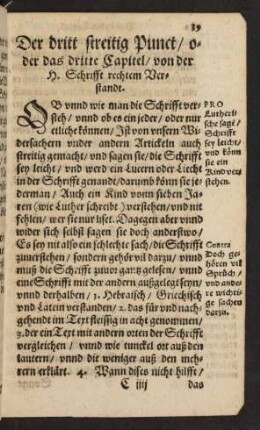 39
Der dritt streitig Punct / o-
der das dritte Capitel / von der
H. Schrifft rechtem Ver-
standt.
OB vnnd wie man die Schrifft ver-
steh / vnnd ob es ein jeder / oder nur
etliche können / Ist von vnsern Wi-
dersachern vnder andern Articfeln auch
streitig gemacht / vnd sagen sie / die Schrifft
sey leicht / vnd werd ein Lucern oder Liecht
in der Schrifft genandt / darumb könn sie je-
derman / Auch ein Kind vonn siben Ja-
ren (wie Luther schreibt) verstehen / vnd nit
fehlen / wer sie nur liset. Dagegen aber vnnd
wider sich selbst sagen sie doch anderstwo /
Es sey nit also ein schlechte sach / die Schrifft
zuuerstehen / sondern gehör vil darzu / vnnd
muß die Schrifft zuuor gantz gelesen / vnnd
eine Schrifft mit der andern außgelegt seyn /
vnnd derhalben / 1. Hebraisch / Griechisch
vnd Latein verstanden / 2. das für vnd nach-
gehendt im Text fleissig in acht genommen /
3. der ein Text mit andern orten der Schrifft
vergleichen / vnnd wie tunckel ort auß den
lautern / vnnd die weniger auß den meh-
rern erklärt. 4. Wann dises nicht hilfft /
C iiij das
PRO
Lutheri-
sche sagē /
Schrifft
sey leicht /
vnd könn
sie ein
Kind ver-
stehen.
Contra
Doch ge-
hören vil
Sprüch /
vnd ande-
re wichti-
ge sachen
darzu.